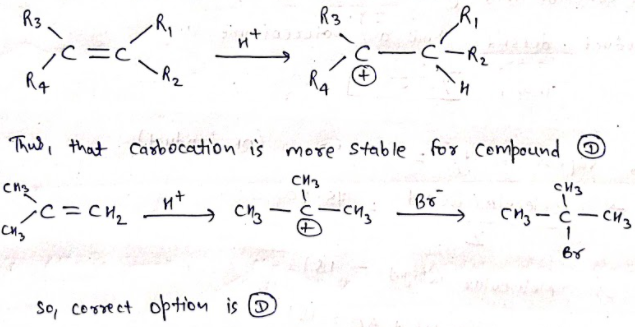 R3 R1 R3 R1
C = C H+ C — C — R2
R4 R2 R4 + H
Thus, that carbocation is more stable for compound D
CH3 CH3 CH3
C = CH2 H+ CH3 — C — CH3 Br- CH3 — C — CH3
CH3 + Br
So, correct option is D